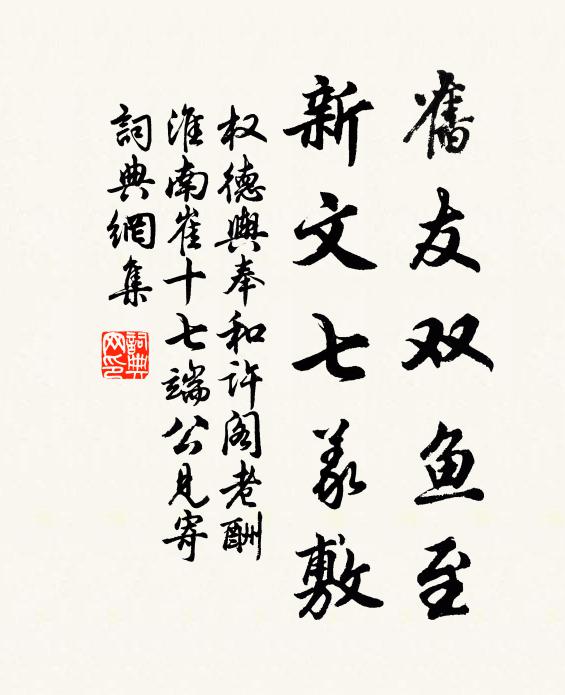 舊友双鱼至
新文七义敷
权德輿奉和许阁老酬
淮南崔十七端公見寄
詞典網集
詞典网印